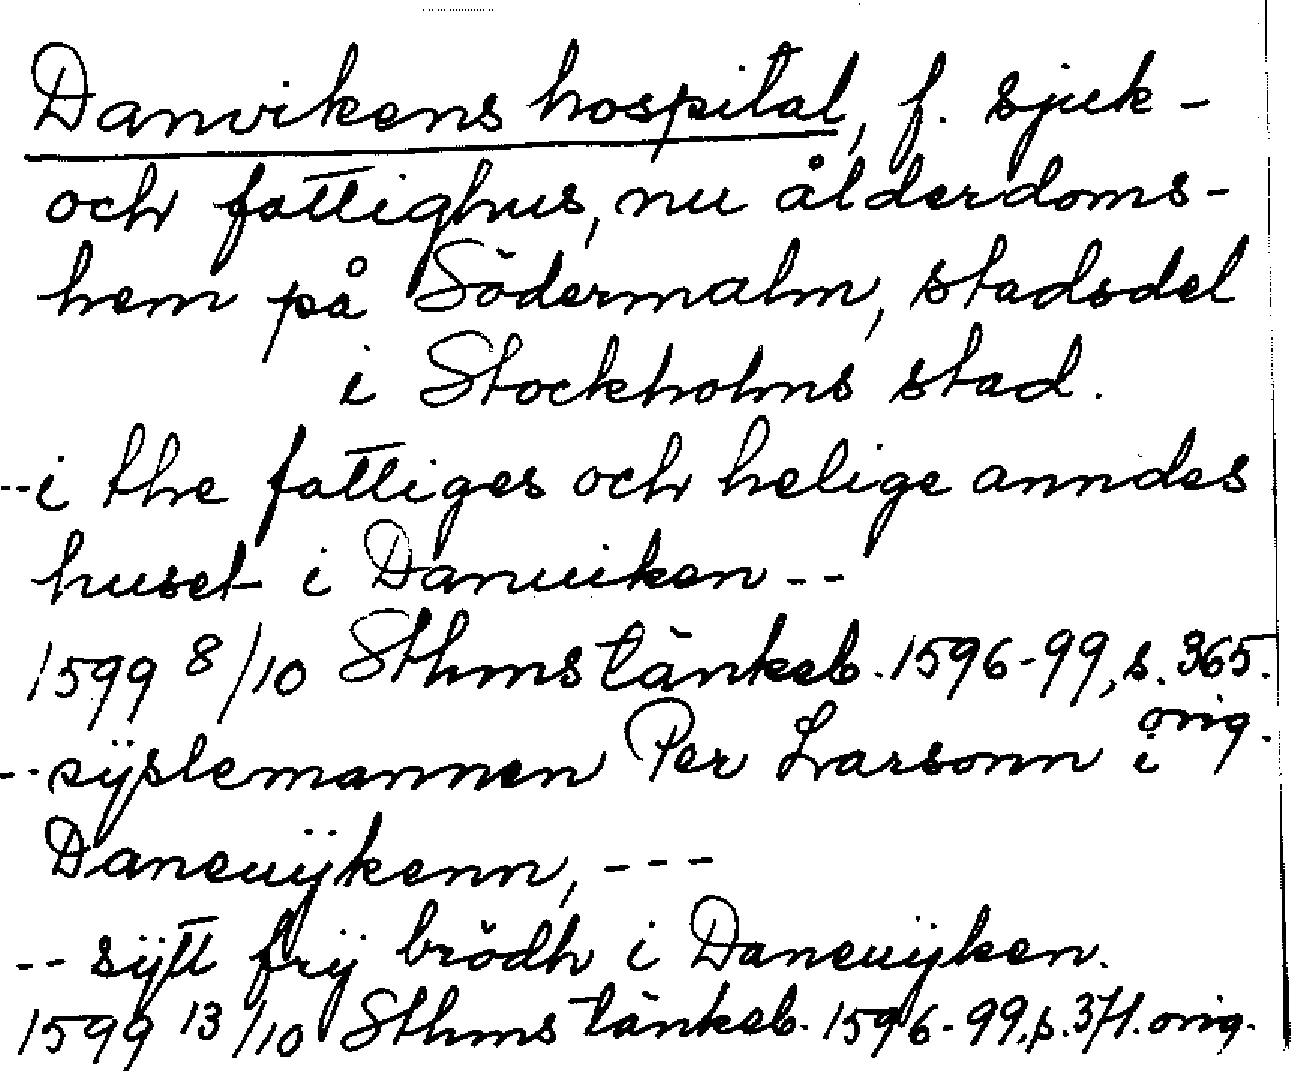 Danvikens hospital, f. sjuk-
och fattighus, nu ålderdoms-
hem på Södermalm, stadsdel
i Stockholms stad.
--i the fattiges och helige anndes
huset i Danuiken--
1599 8/10 Sthms tänkeb. 1596-99, s. 365.
orig.
--sÿslemannen Per Larsonn i
Daneuÿkenn, ---
--sÿtt frÿ brödh i Daneuÿken.
1599 13/10 Sthms tänkeb. 1596-99, s. 371. orig.